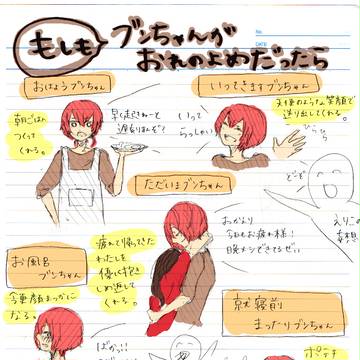 もしも
ブンちゃんが
おれのよめだったら
No.
DATE
おはようブンちゃん
いってきますブンちゃん
朝ごはん
つくって
くれる。
早く走らねーと
遅刻すんぞ?
いって
らっしゃい
天使のような笑顔で
送り出してくれる。
ひらひら
どーぞ
ただいまブンちゃん
えりこの
妄想
おかえり
今日もお疲れ様!
晩メシできてるぜぃ
疲れて帰ってきた
わたしを
優しく抱き
しめ返して
くれる。
お風呂
ブンちゃん
今更顔まっかに
なる。
就寝前
まったりブンちゃん
ばかっ!!
ポテチ